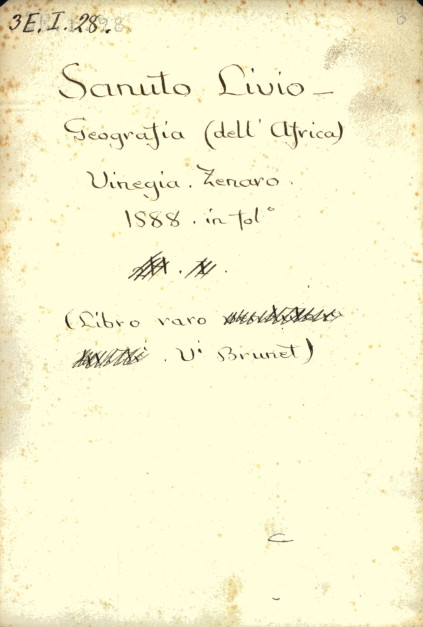 3E.I.28.
Sanuto Livio —
Geografia (dell' Africa)
Vinegia. Zenaro.
1588. in fol°
(Libro raro
. Vi Brunet)